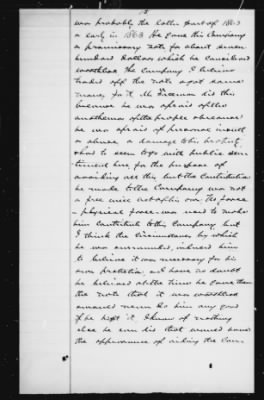 was probably the latter part of 1862
or early in 1863 He gave this Company
a promissory note for about seven
hundred dollars which he considered
worthless The Company I believe
traded off the note & got some
money for it. Mr Freeman did this
because he was afraid of the
of the proper observance
he was afraid of personal insult
or abuse or damage to his property
tried to seem to go with public sen-
timent here for the purpose of
avoiding all this but the Contribution
he made to the Company was not
a free will act of his own No force
- physical force was used to make
him contribute to this Company but
I think the Circumstances by which
he was surrounded, induced him
to believe it was necessary for his
own protection and I have no doubt
he believed at the time he gave them
the note that it was worthless
would never do him any good
if he kept it I know of nothing
else he ever did that would have
the appearance of aiding the Con-